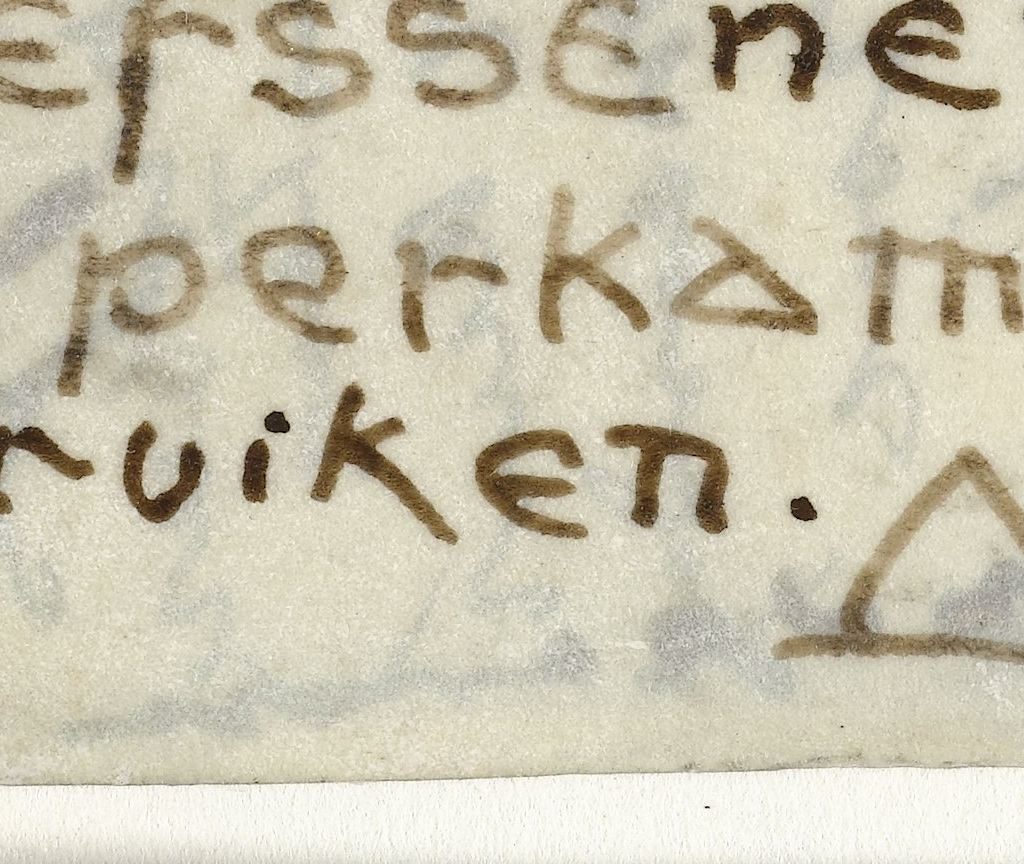 erssene
perkam
ruiken.